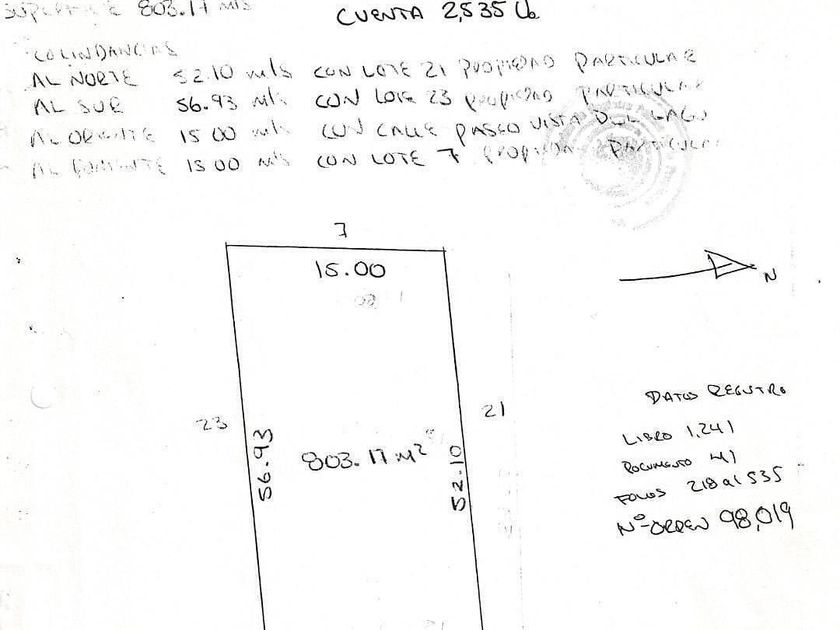 SUPERFICIE 803.17 mts
CUENTA 2,535 Ub.
COLINDANCIAS
AL NORTE 52.10 mts CON LOTE 21 PROPIEDAD PARTICULAR
AL SUR 56.93 mts CON LOTE 23 PROPIEDAD PARTICULAR
AL ORIENTE 15.00 mts CON CALLE PASEO VISTA DEL LAGO
AL PONIENTE 15.00 mts CON LOTE 7 PROPIEDAD PARTICULAR
7
15.00
N
DATOS REGISTRO
23
21
LIBRO 1,241
56.93
803.17 M²
52.10
DOCUMENTO 41
FOLIOS 218 al 535
Nº-ORDEN 98,019